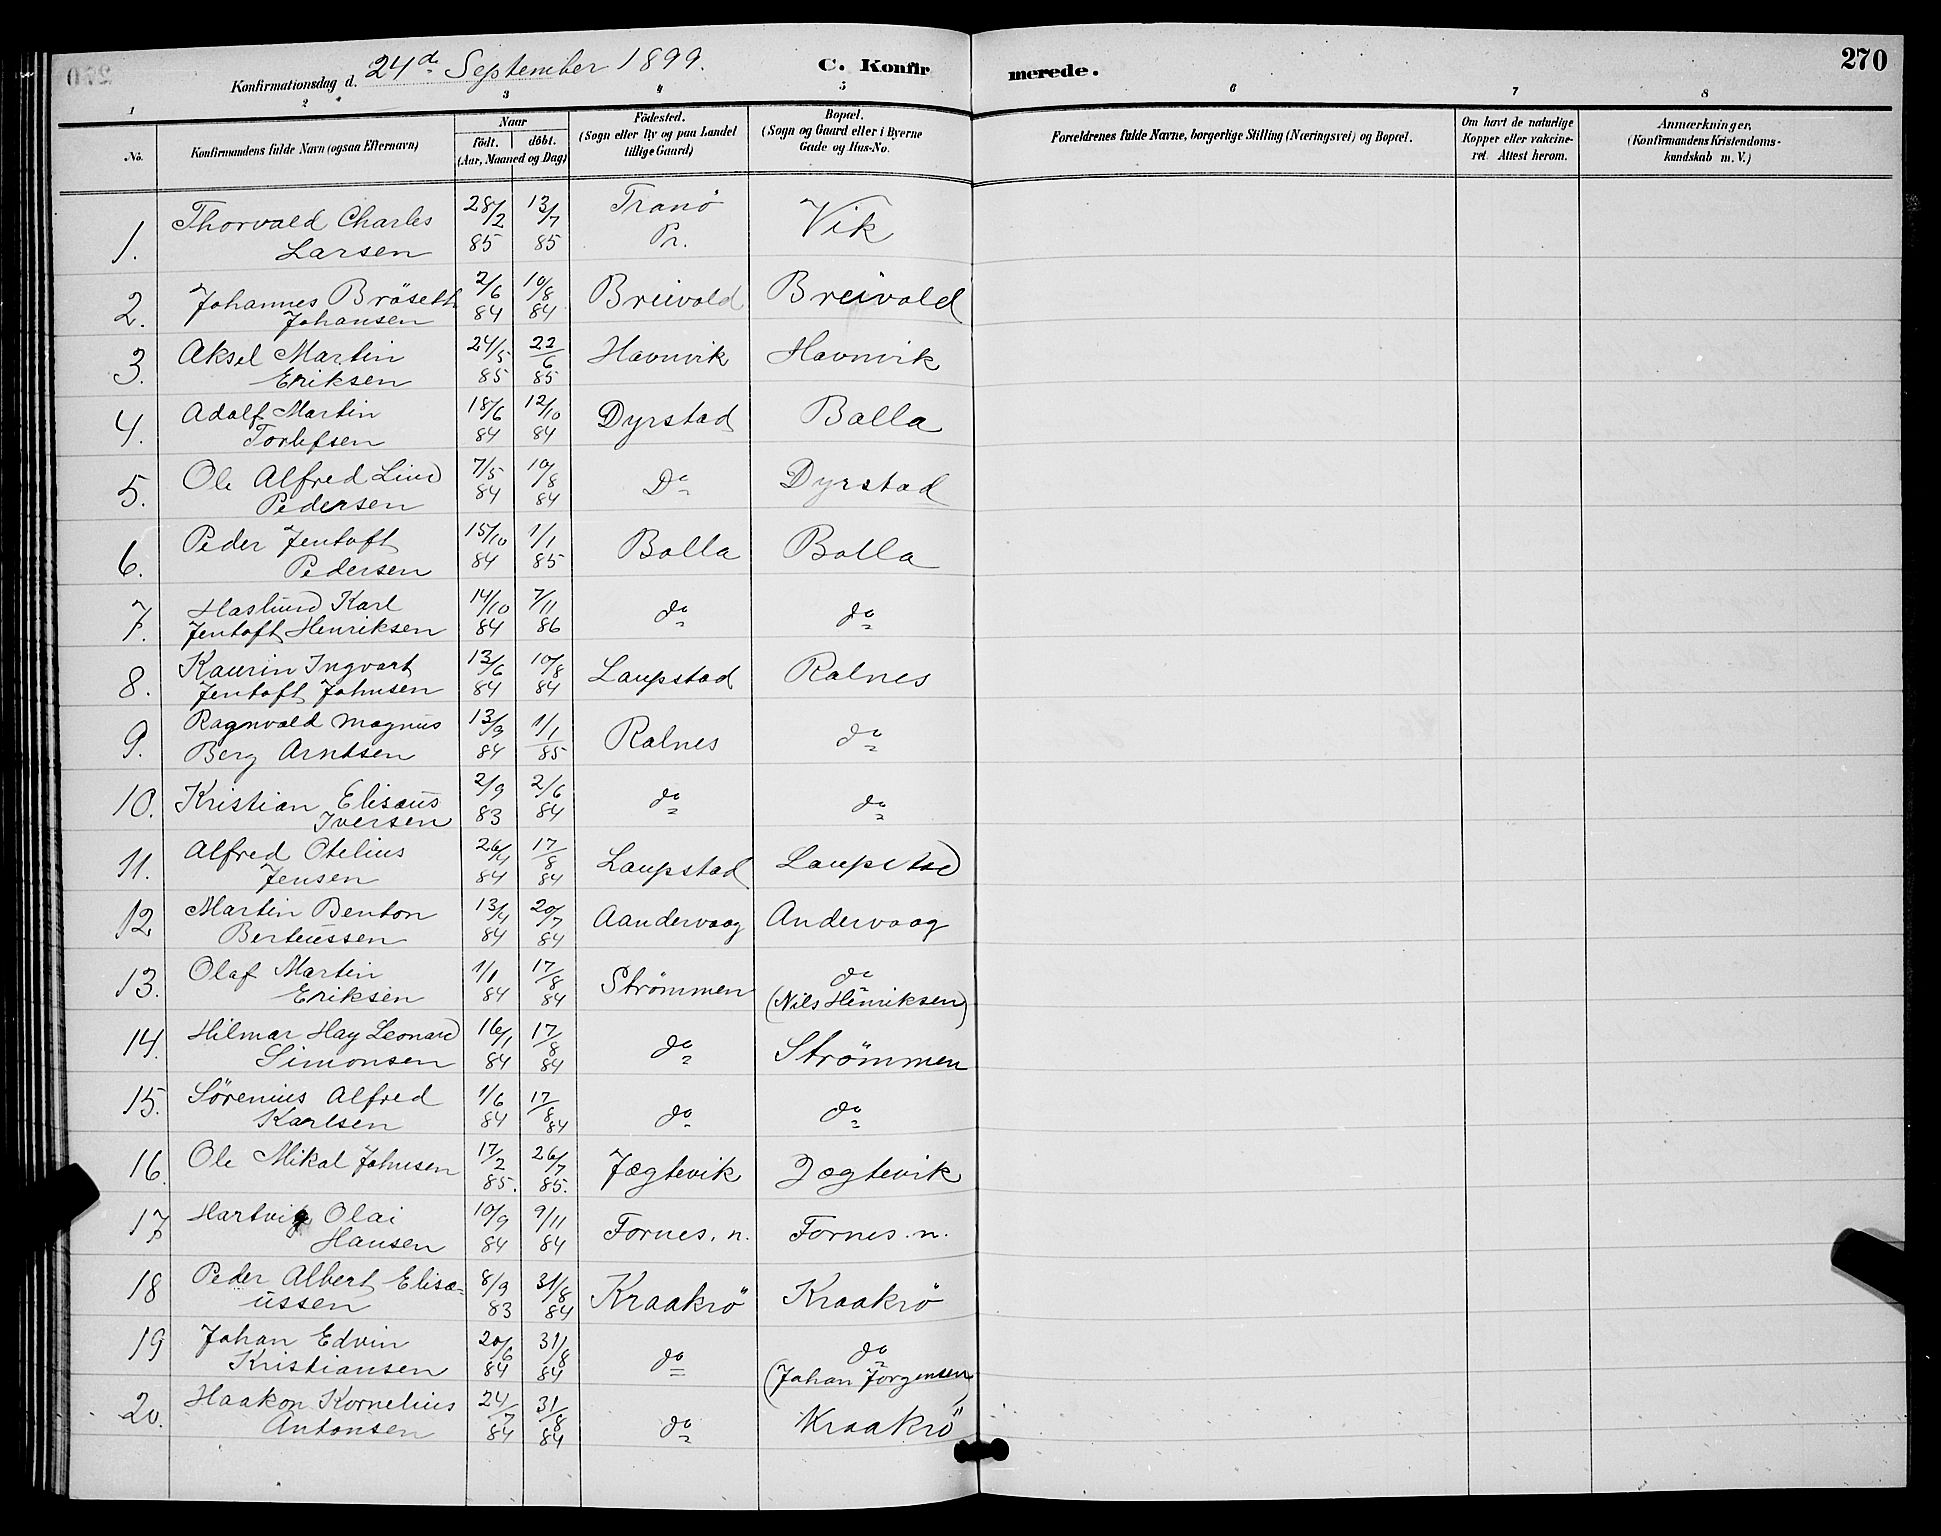 270
Konfirmationsdag d. 24d September 1899. C. Konfirmerede.
1 2 3 4 5 6 7 8
No. Konfirmandens fulde Navn (ogsaa Efternavn) Naar født. døbt. (Aar, Maaned og Dag) Fødested. (Sogn eller By og paa Landet tillige Gaard) Bopæl. (Sogn og Gaard eller i Byerne Gade og Hus-No. Forældrenes fulde Navne, borgerlige Stilling (Næringsvei) og Bopæl. Om havt de naturlige Kopper eller vakcineret. Attest herom. Anmærkninger, (Konfirmandens Kristendomskundskab m. V.)
1. Thorvald Charles Larsen 28/2 85 13/7 85 Tranö Pr. Vik
2. Johannes Bröseth Johansen 2/6 84 10/8 84 Breivold Breivold
3. Aksel Martin Eriksen 24/5 85 22/6 85 Havnvik Havnvik
4. Adolf Martin Torlefsen 18/6 84 12/10 84 Dyrstad Balla
5. Ole Alfred Lind Pedersen 7/5 84 10/8 84 Do Dyrstad
6. Peder Jentoft Pedersen 15/10 84 1/1 85 Bolla Bolla
7. Haslund Karl Jentoft Henriksen 14/10 84 7/11 86 do do
8. Kaurin Ingvart Jentoft Johnsen 13/6 84 10/8 84 Laupstad Ralnes
9. Ragnvald Magnus Berg Arntsen 13/9 84 1/1 85 Ralnes do
10. Kristian Elisæus Iversen 2/9 83 2/6 84 do do
11. Alfred Otelius Jensen 26/4 84 17/8 84 Laupstad Laupstad
12 Martin Benton Berteussen 13/4 84 20/7 84 Aandervaag Andervaag
13. Olaf Martin Eriksen 1/1 84 17/8 84 Strømmen do (Nils Henriksen)
14. Hilmar Hay Leonard Simonsen 16/1 84 17/8 84 do Strømmen
15. Sörenius Alfred Karlsen 1/6 84 17/8 84 do do
16. Ole Mikal Johnsen 17/2 85. 26/7 85. Jægtevik Jægtevik
17 Hartvig Olai Hansen 10/9 84 9/11 84 Fornes. n. Fornes. n.
18 Peder Albert Elisæ=ussen 8/9 83 31/8 84 Kraakrö Kraakrö
19 Johan Edvin Kristiansen 20/6 84 31/8 84 do do (Johan Jörgensen)
20. Haakon Kornelius Antonsen 24/7 84 31/8 84 do Kraakrö